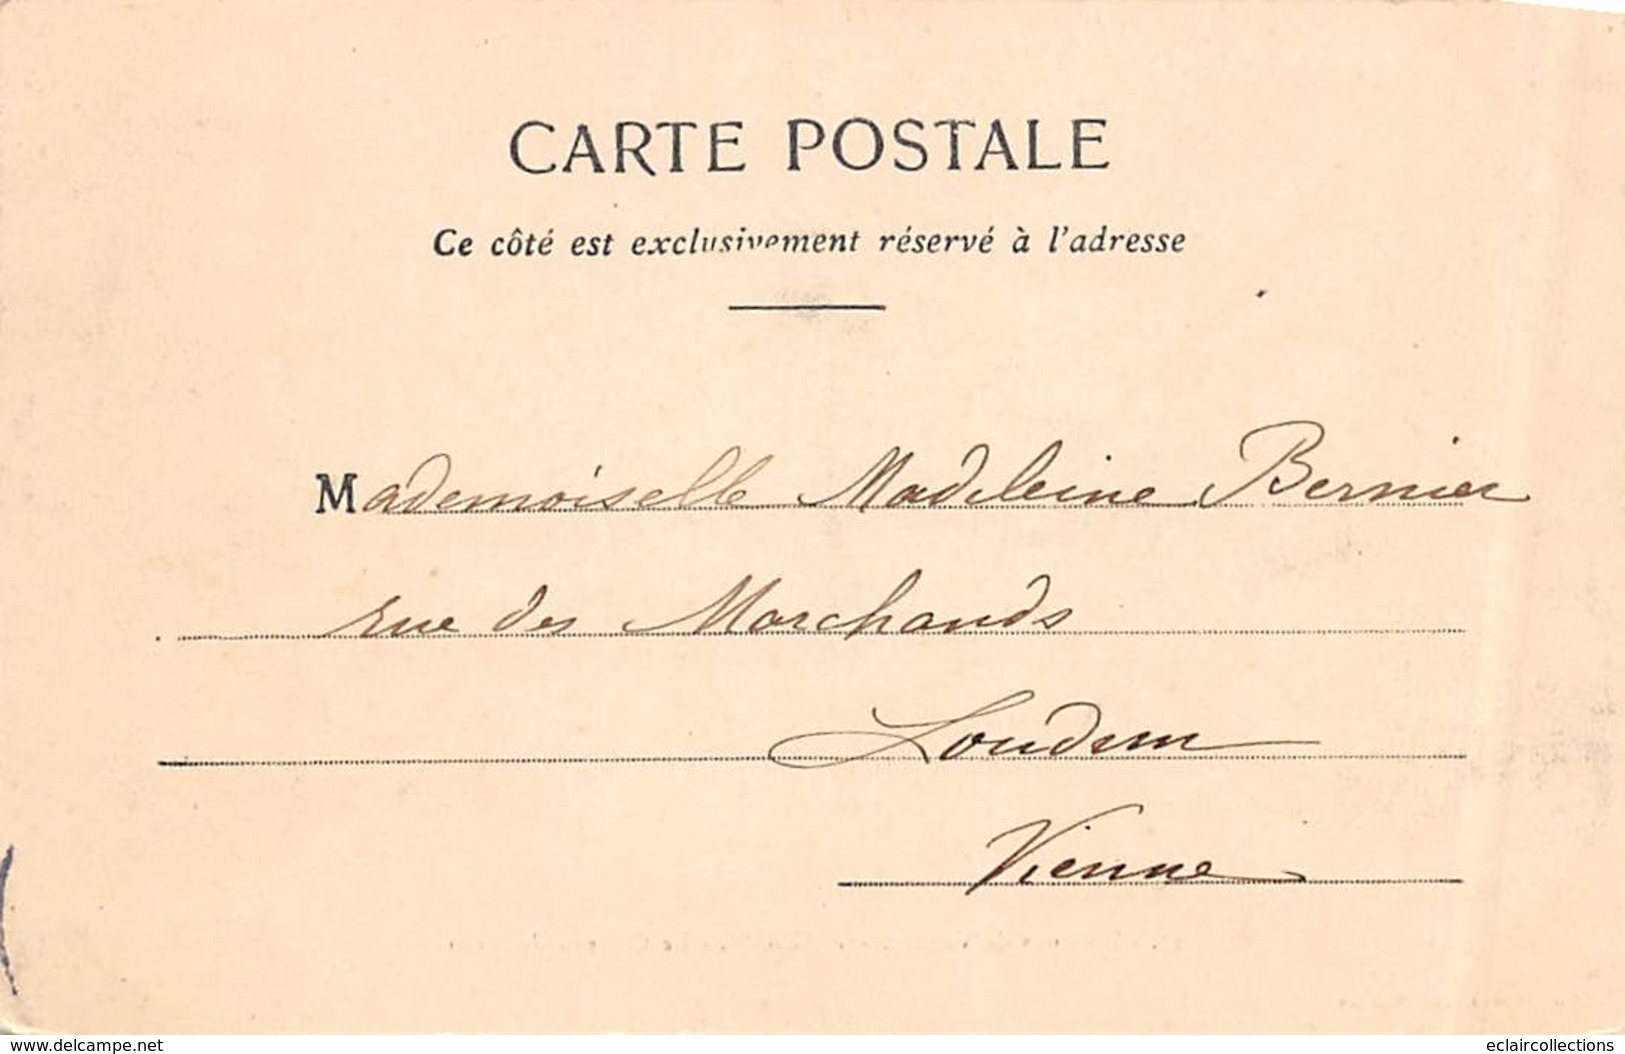 CARTE POSTALE
Ce côté est exclusivement réservé à l'adresse
Mademoiselle Madeleine Bernier
rue des Marchands
Loudun
Vienne
www.delcampe.net
eclaircollections